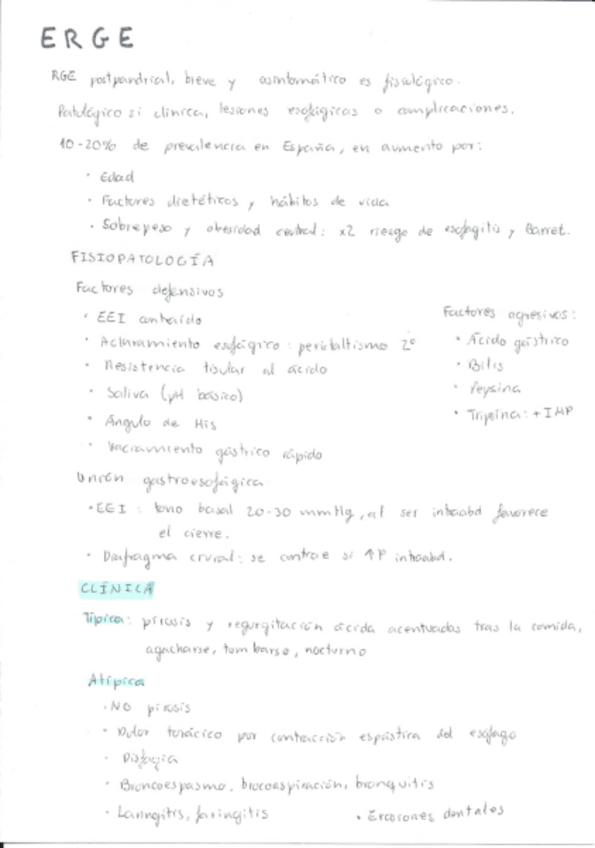 ERGE
RGE postpandrial, breve y asintomático es fisiológico.
Patológico si clínica, lesiones esofágicas o complicaciones.
10-20% de prevalencia en España, en aumento por:
· Edad
· Factores dietéticos y hábitos de vida
· Sobrepeso y obesidad central: x2 riesgo de esofagitis y Barret.
FISIOPATOLOGÍA
Factores defensivos
· EEI contraído
· Aclaramiento esofágico: peristaltismo 2º
· Resistencia tisular al ácido
· Saliva (pH básico)
· Ángulo de His
· Vaciamiento gástrico rápido
Factores agresivos:
· Ácido gástrico
· Bilis
· Pepsina
· Tripsina: + IMP
Unión gastroesofágica
· EEI: tono basal 20-30 mmHg, al ser intraabd favorece
el cierre.
· Diafragma crural: se contrae si ↑P intraabd.
CLÍNICA
Típica: pirosis y regurgitación ácida acentuadas tras la comida,
agacharse, tumbarse, nocturno
Atípica
· NO pirosis
· Dolor torácico por contracción espástica del esófago
· Disfagia
· Broncoespasmo, brocoaspiración, bronquitis
· Laringitis, faringitis
· Erosiones dentales